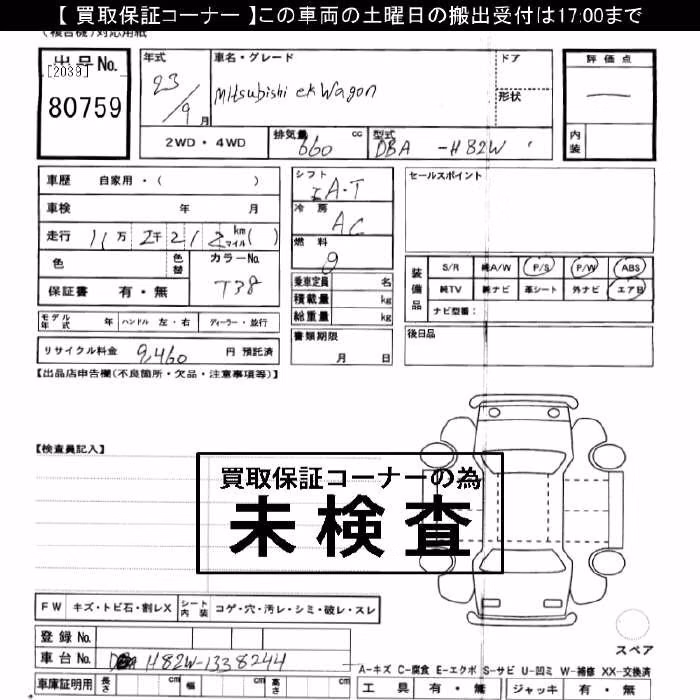 【 買取保証コーナー 】この車両の土曜日の搬出受付は17:00まで
(複合機)対応用紙
出品No.
[2039]
80759
年式
23/9月
車名・グレード
Mitsubishi ek Wagon
ドア
形状
評価点
—
内装
2WD・4WD
排気量
660 cc
型式
DBA -H82W
車歴 自家用・( )
車検 年 月
走行 11万2千212 km マイル( )
色
色替
カラーNo.
T38
保証書 有・無
シフト
IA-T
冷房
AC
燃料
g
乗車定員 名
積載量 kg
総重量 kg
書類期限
月 日
セールスポイント
装備品
S/R 純A/W P/S P/W ABS
純TV 純ナビ 革シート 外ナビ エアB
ナビ型番:
後日品
モデル年式 年 ハンドル 左・右 ディーラー・並行
リサイクル料金 9,460 円 預託済
【出品店申告欄(不良箇所・欠品・注意事項等)】
【検査員記入】
買取保証コーナーの為
未検査
FW キズ・トビ石・割レX シート内装 コゲ・穴・汚レ・シミ・破レ・スレ
スペア
登録No.
車台No. DBA H82W-1338244
A-キズ C-腐食 E-エクボ S-サビ U-凹ミ W-補修 XX-交換済
車庫証明用 長さ cm 幅 cm 高さ cm
工具 有・無 ジャッキ 有・無